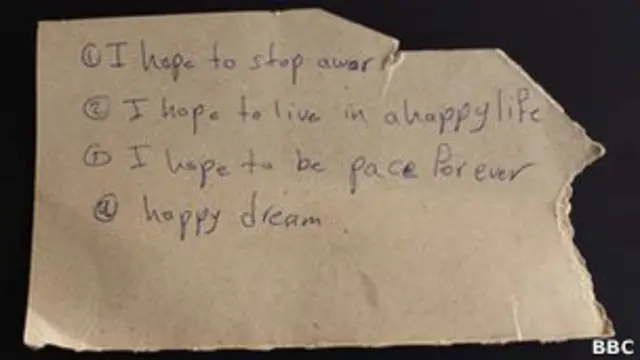 ① I hope to stop awar
② I hope to live in a happy life
③ I hope to be pace for ever
④ happy dream.
BBC